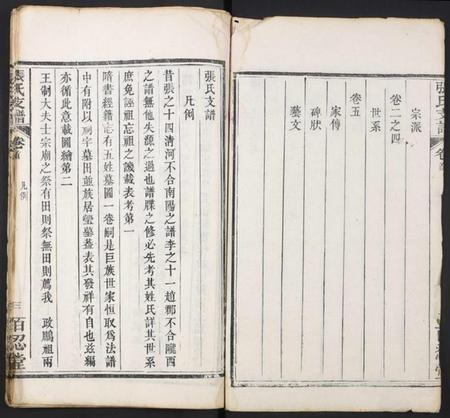 張氏支譜
宗派
卷二之四
世系
卷五
家傳
碑狀
藝文
張氏支譜
凡例
昔張之十四清河不合南陽之譜李之十一趙郡不合隴西
之譜無他失源之過也譜牒之修必先考其姓氏詳其世系
庶免誣祖忘祖之譏載表考第一
隋書經籍志有五姓墓圖一卷嗣是巨族世家恒取爲法譜
中有附以祠宇墓田並族居塋墓蓋表其發祥有自也茲編
亦循此意載圖繪第二
王制大夫士宗廟之祭有田則祭無田則薦我 政鵬祖兩
張氏支譜 卷首 凡例 三 百忍堂